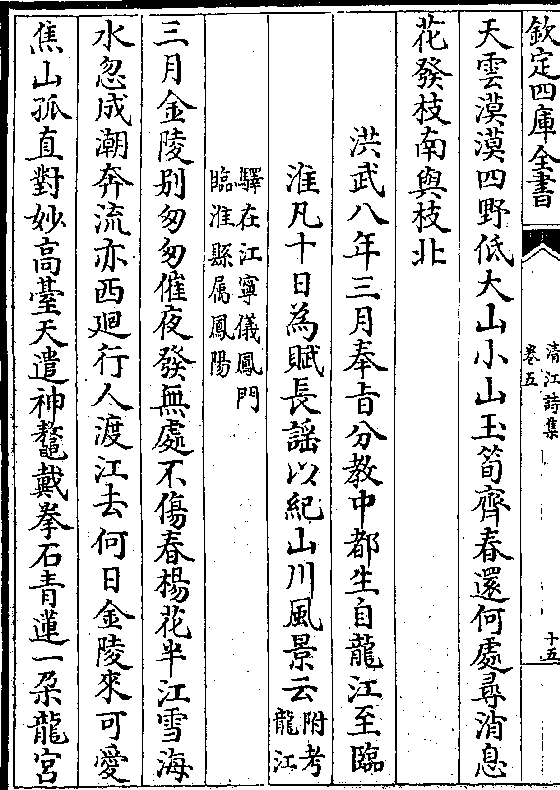 欽定四庫全書
清江詩集
卷五
十五
天雲漠漠四野低大山小山玉筍齊春還何處尋消息
花發枝南與枝北
洪武八年三月奉旨分教中都生自龍江至臨
淮凡十日為賦長謡以紀山川風景云附考
龍江
驛在江寧儀鳳門
臨淮縣属鳳陽
三月金陵别匆匆催夜發無處不傷春楊花半江雪海
水忽成潮奔流亦西廻行人渡江去何日金陵來可愛
焦山孤直對妙高䑓天遣神鼇戴拳石青蓮一朶龍宮